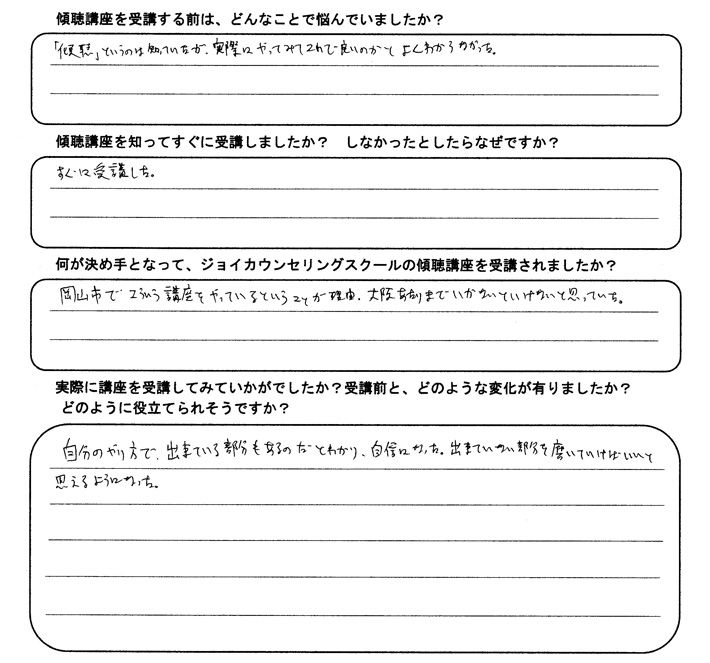 傾聴講座を受講する前は、どんなことで悩んでいましたか？
「傾聴」というのは知っていたが、実際にやってみてこれで良いのかと よくわからなかった。
傾聴講座を知ってすぐに受講しましたか？　しなかったとしたらなぜですか？
すぐに受講した。
何が決め手となって、ジョイカウンセリングスクールの傾聴講座を受講されましたか？
岡山市で こういう講座を やっているということが理由。大阪あたりまでいかないといけないと思っていた。
実際に講座を受講してみていかがでしたか？受講前と、どのような変化が有りましたか？
どのように役立てられそうですか？
自分のやり方で、出来ている部分もあるのだとわかり、自信になった。出来ていない部分を磨いていけばいいと
思えるようになった。